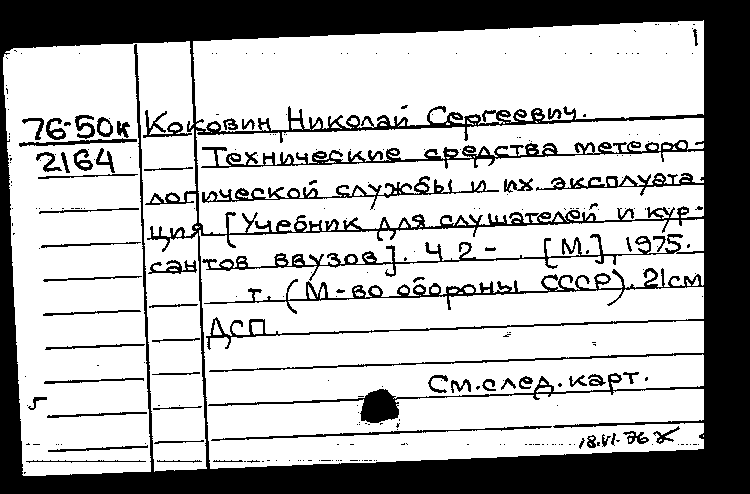 1
76-50к Коковин, Николай Сергеевич.
2164 Технические средства метеоро-
логической службы и их эксплуата-
ция. [Учебник для слушателей и кур-
сантов ввузов]. Ч 2- . [М.], 1975.
т. (М-во обороны СССР). 21см
ДСП.
См.след.карт.
5
18.VI.76